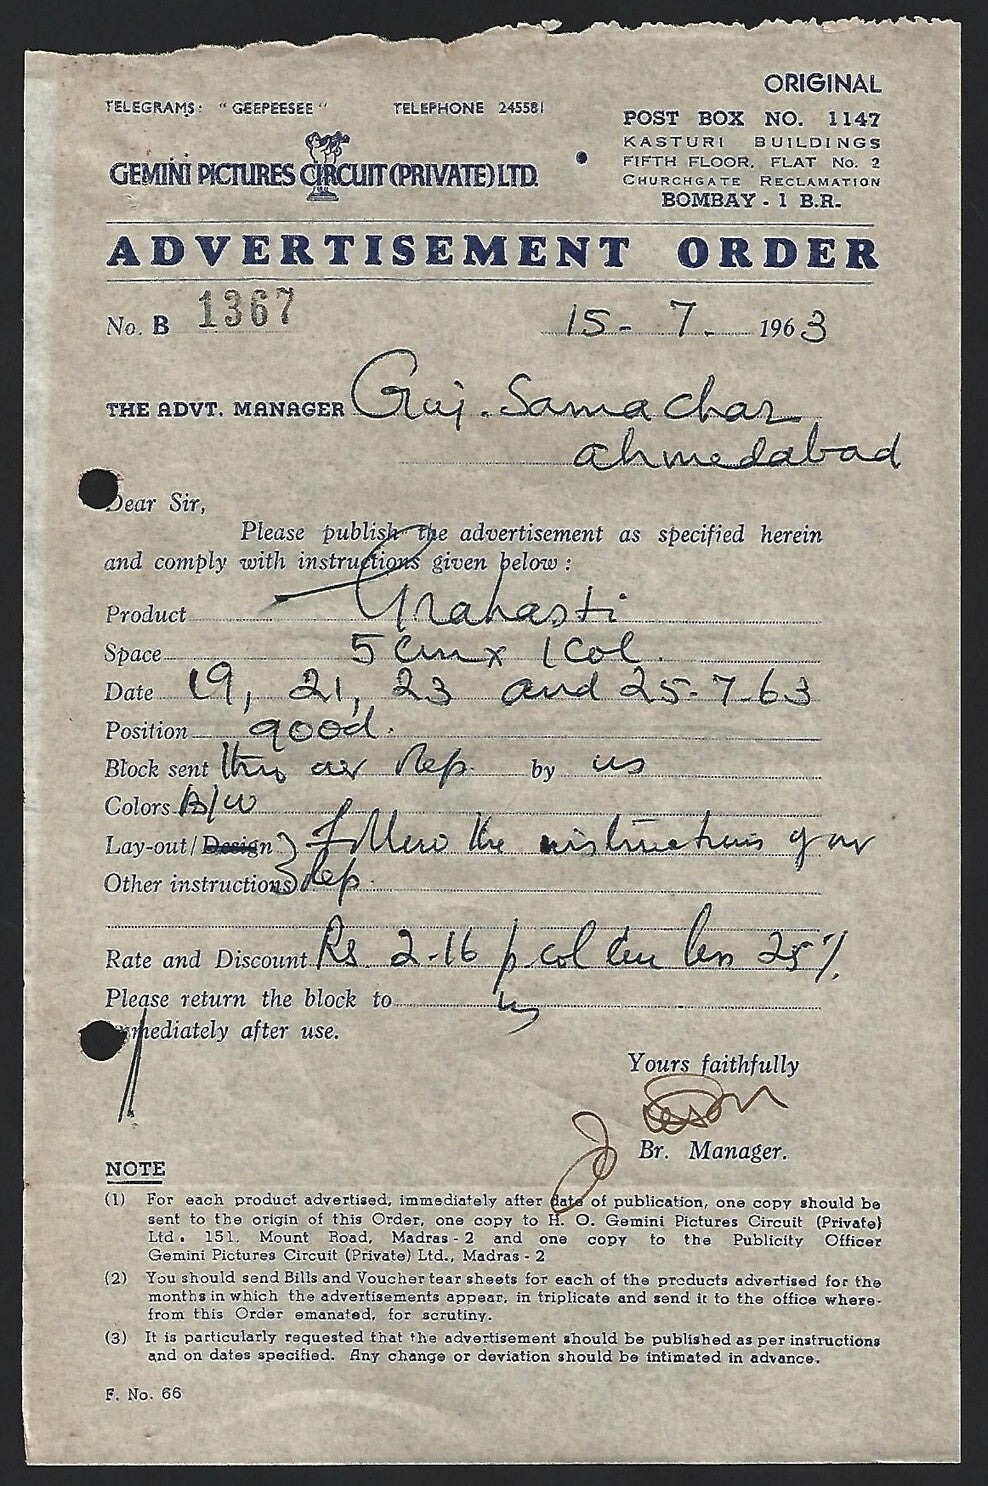 ORIGINAL
TELEGRAMS: "GEEPEESEE" TELEPHONE 245581
POST BOX NO. 1147
KASTURI BUILDINGS
FIFTH FLOOR, FLAT No. 2
CHURCHGATE RECLAMATION
BOMBAY - 1 B.R.
GEMINI PICTURES CIRCUIT (PRIVATE) LTD.
ADVERTISEMENT ORDER
No. B 1367 15 - 7. 1963
THE ADVT. MANAGER Guj. Samachar
ahmedabad
Dear Sir,
Please publish the advertisement as specified herein
and comply with instructions given below :
Product Grahasti
Space 5 cm x 1 Col.
Date 19, 21, 23 and 25-7-63
Position good.
Block sent thro our Rep by us
Colors B/W
Lay-out/Design } Follow the instructions of our
Other instructions } Rep.
Rate and Discount Rs 2-16 p col cm less 25%
Please return the block to us
immediately after use.
Yours faithfully
Br. Manager.
NOTE
(1) For each product advertised, immediately after date of publication, one copy should be
sent to the origin of this Order, one copy to H. O. Gemini Pictures Circuit (Private)
Ltd. 151, Mount Road, Madras - 2 and one copy to the Publicity Officer
Gemini Pictures Circuit (Private) Ltd., Madras - 2
(2) You should send Bills and Voucher tear sheets for each of the products advertised for the
months in which the advertisements appear, in triplicate and send it to the office where-
from this Order emanated, for scrutiny.
(3) It is particularly requested that the advertisement should be published as per instructions
and on dates specified. Any change or deviation should be intimated in advance.
F. No. 66